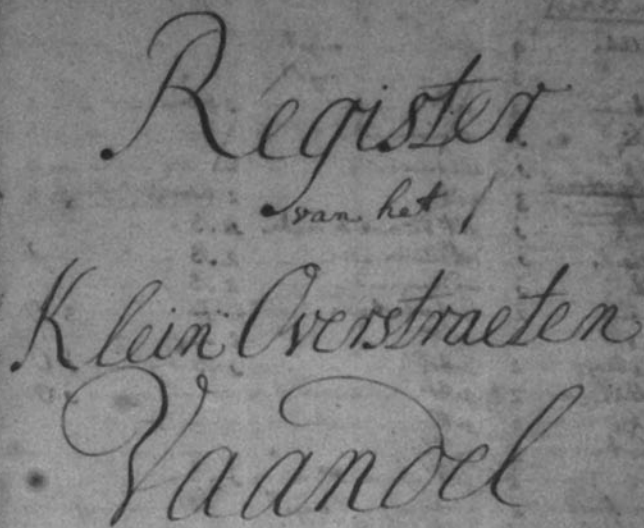 Register
van het
Klein Overstraeten
Vaandel